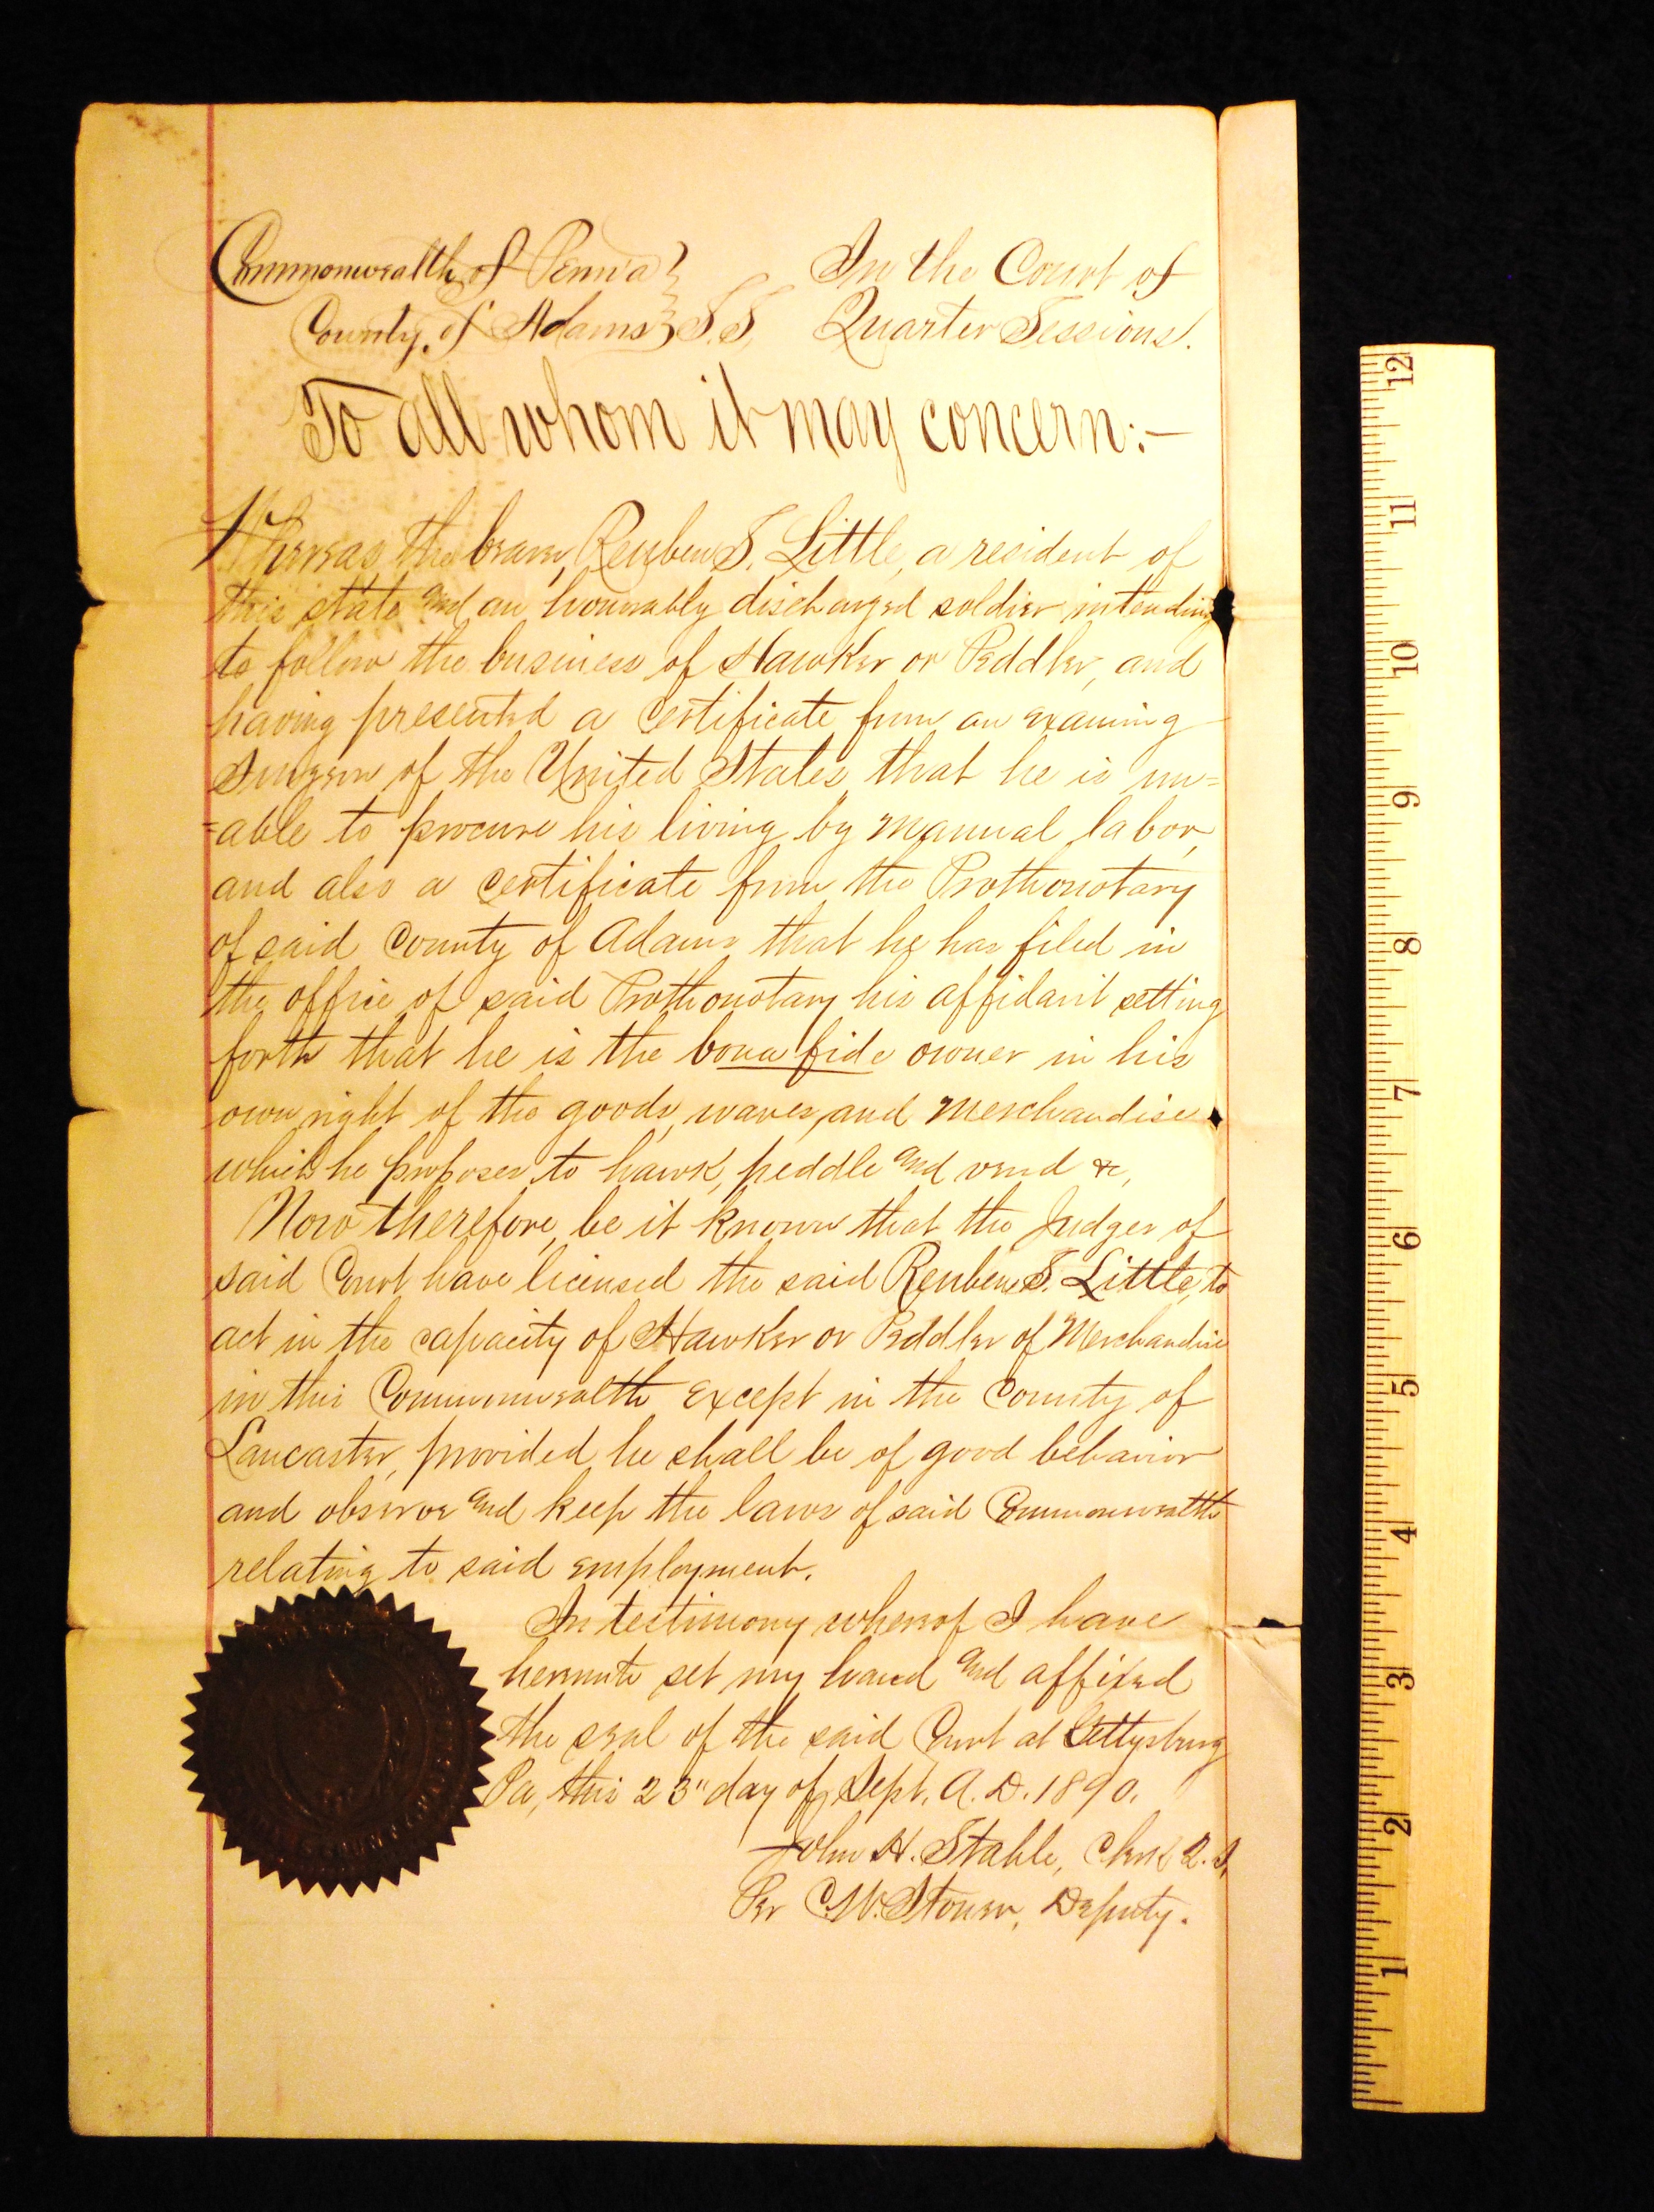 Commonwealth of Penn'a } In the Court of
County of Adams } S.S. Quarter Sessions.
To all whom it may concern:—
Whereas the bearer, Reuben S. Little, a resident of
this state and an honorably discharged soldier intending
to follow the business of Hawker or Peddler, and
having presented a certificate from an examing
Surgeon of the United States that he is un=
=able to procure his living by manual labor,
and also a certificate from the Prothonotary
of said County of Adams that he has filed in
the office of said Prothonotary his affidavit setting
forth that he is the bona fide owner in his
own right of the goods, wares, and merchandise
which he proposes to hawk, peddle and vend &c,
Now therefore, be it known that the Judges of
said Court have licensed the said Reuben S. Little, to
act in the capacity of Hawker or Peddler of Merchandise
in this Commonwealth except in the County of
Lancaster, provided he shall be of good behavior
and observe and keep the laws of said Commonwealth
relating to said employment.
In testimony whereof I have
hereunto set my hand and affixed
the seal of the said Court at Gettysburg
Pa, this 23" day of Sept. A.D. 1890.
John H. Stahle, Clerk Q.S.
Per C.W. Stoner, Deputy.
12
11
10
9
8
7
6
5
4
3
2
1